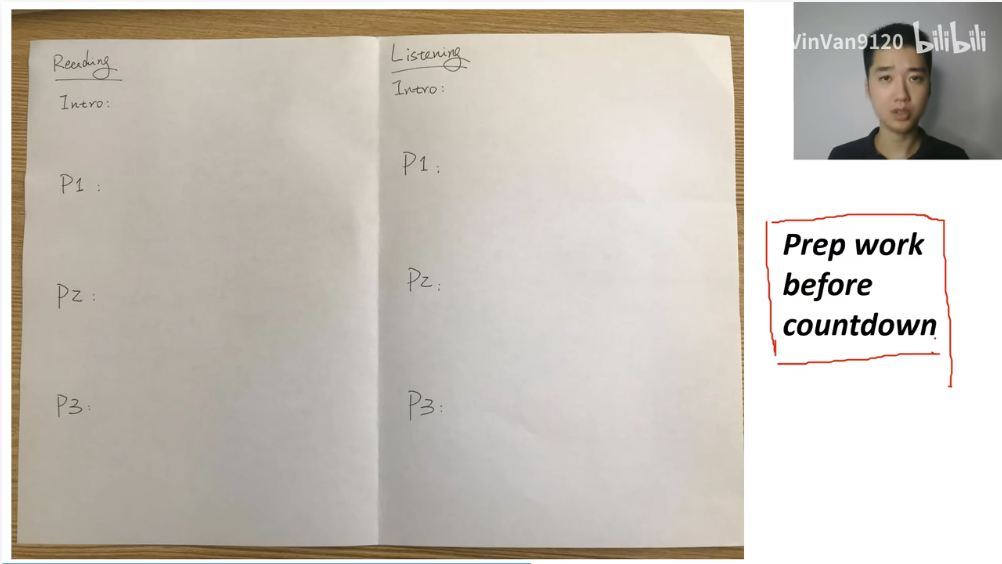 Reading
Intro:
P1:
P2:
P3:
Listening
Intro:
P1:
P2:
P3:
VinVan9120 bilibili
Prep work
before
countdown